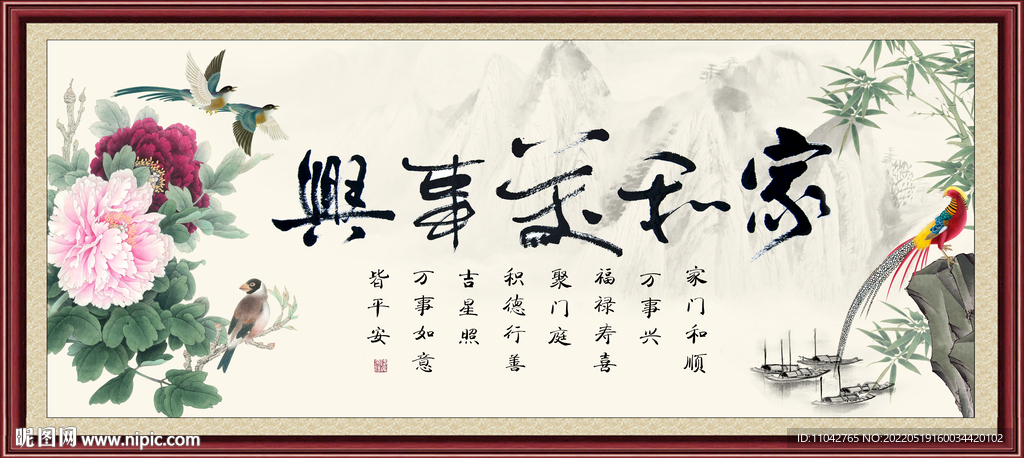 家和萬事興
家门和顺
万事兴
福禄寿喜
聚门庭
积德行善
吉星照
万事如意
皆平安
昵图网 www.nipic.com
ID:11042765 NO:20220519160034420102